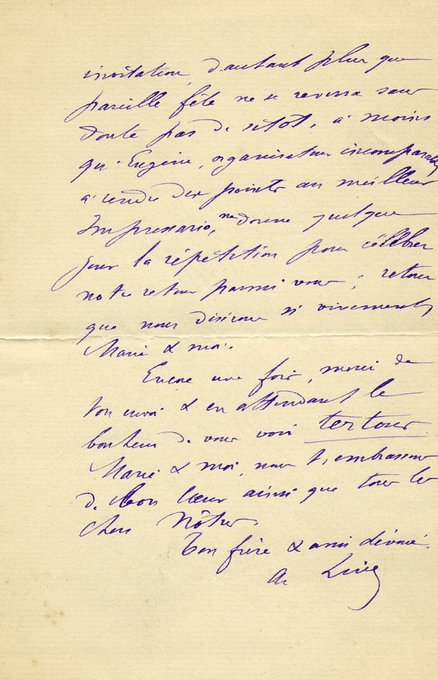 invitation d'autant plus que
pareille fête ne se reverra sans
doute pas de sitôt, à moins
qu'Eugène, organisateur incomparable
à rendre dix points au meilleur
Impressario, ne donne quelque
jour la répétition pour célébrer
notre retour parmi vous ; retour
que nous désirons si vivement
Marie & moi.
Encore une fois, merci de
ton envoi & en attendant le
bonheur de vous voir
Marie & moi, nous t'embrassons
de bon cœur ainsi que tous les
chers Nôtres.
Ton frère & ami dévoué.